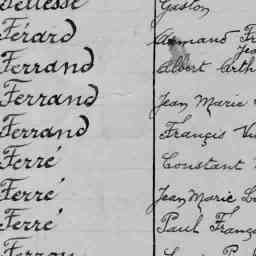 Gaston
Férard Armand Fr
Jea
Ferrand Albert Arth
Ferrand Jean Marie
Ferrand Françis Vi
Ferré Constant
Ferré Jean Marie L
Ferré Paul Franç